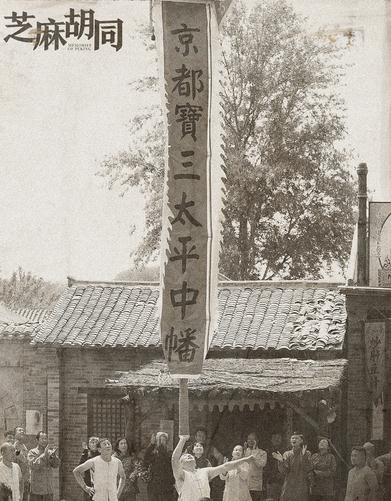 芝麻胡同
MEMORIES
OF PEKING
京都寶三太平中幡